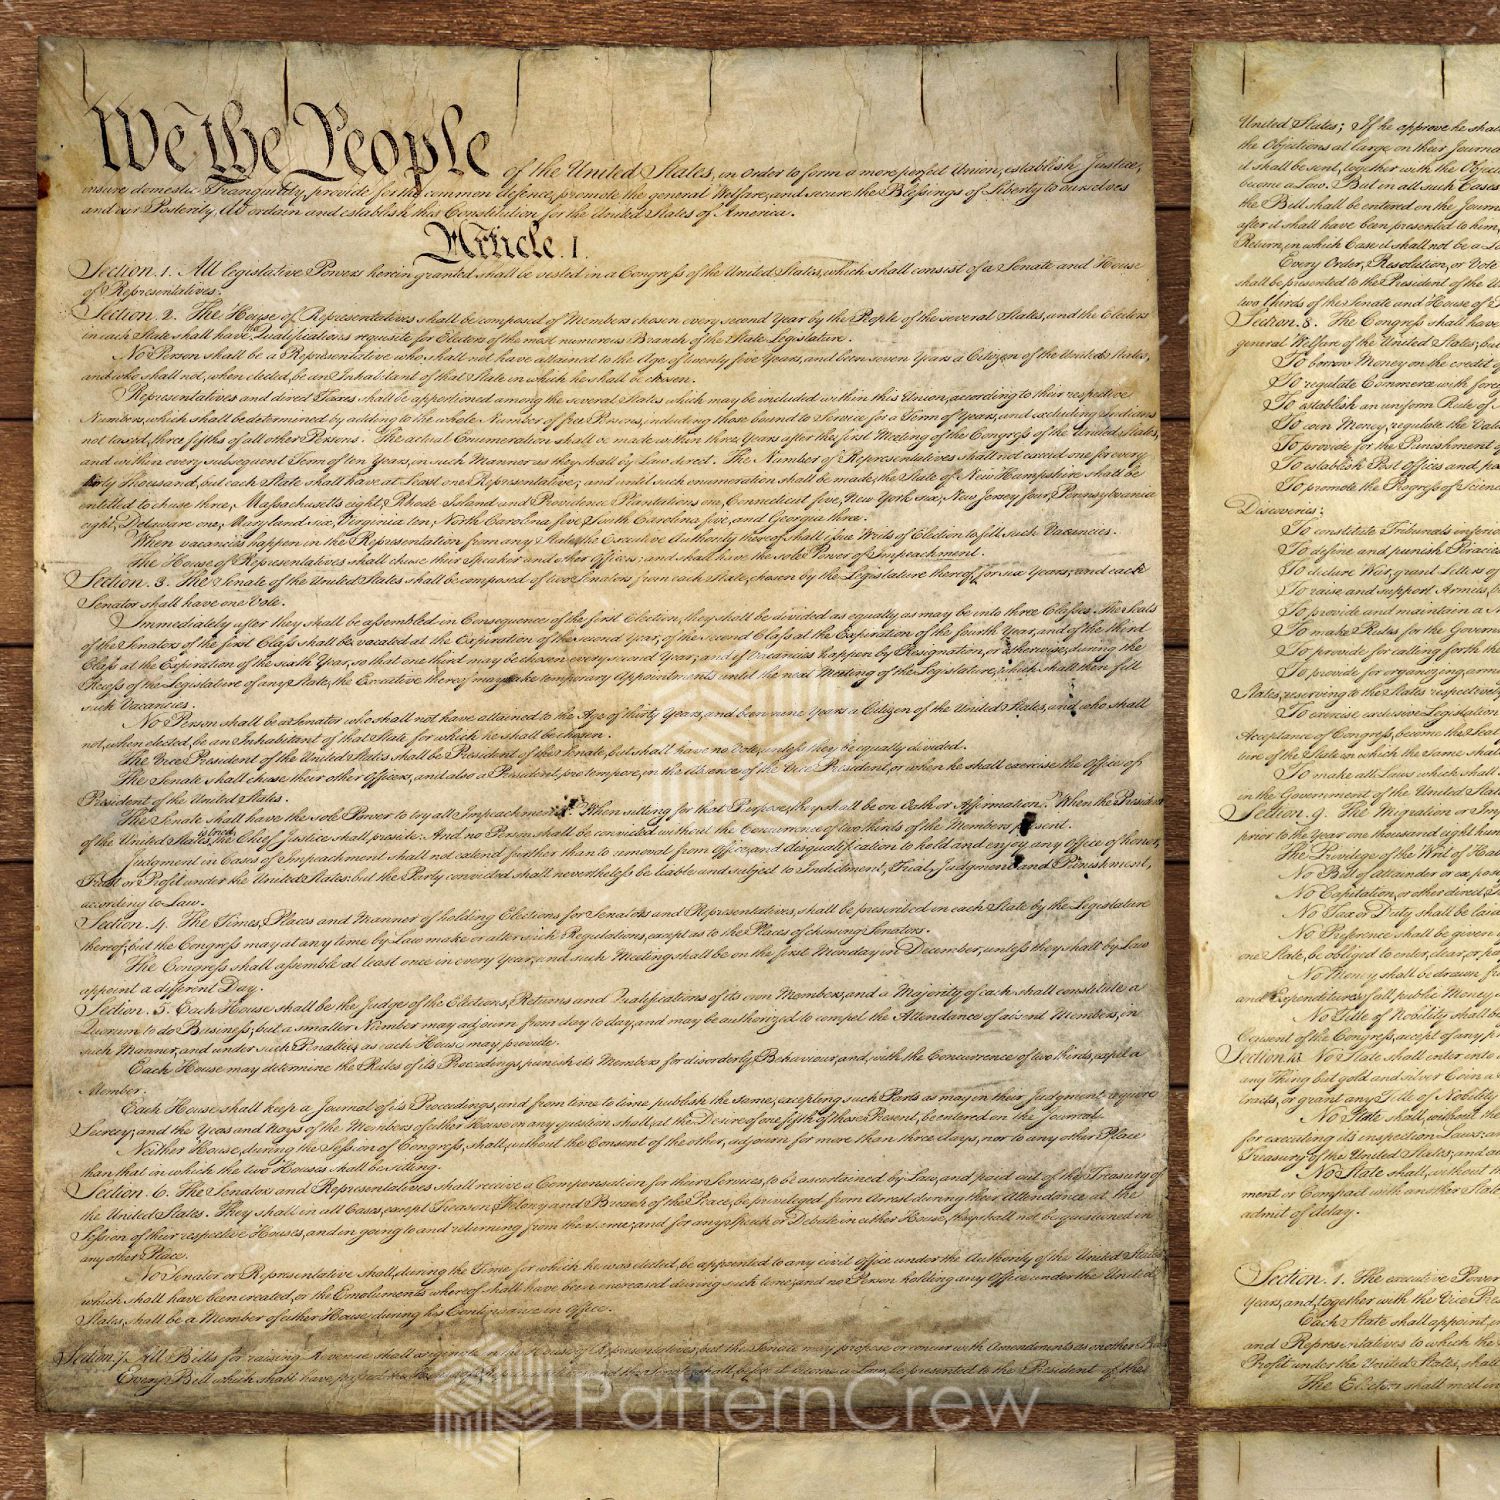 We the People of the United States, in Order to form a more perfect Union, establish Justice,
insure domestic Tranquility, provide for the common defence, promote the general Welfare, and secure the Blessings of Liberty to ourselves
and our Posterity, do ordain and establish this Constitution for the United States of America.
Article. I.
Section. 1. All legislative Powers herein granted shall be vested in a Congress of the United States, which shall consist of a Senate and House
of Representatives.
Section. 2. The House of Representatives shall be composed of Members chosen every second Year by the People of the several States, and the Electors
in each State shall have the Qualifications requisite for Electors of the most numerous Branch of the State Legislature.
No Person shall be a Representative who shall not have attained to the Age of twenty five Years, and been seven Years a Citizen of the United States,
and who shall not, when elected, be an Inhabitant of that State in which he shall be chosen.
Representatives and direct Taxes shall be apportioned among the several States which may be included within this Union, according to their respective
Numbers, which shall be determined by adding to the whole Number of free Persons, including those bound to Service for a Term of Years, and excluding Indians
not taxed, three fifths of all other Persons. The actual Enumeration shall be made within three Years after the first Meeting of the Congress of the United States,
and within every subsequent Term of ten Years, in such Manner as they shall by Law direct. The Number of Representatives shall not exceed one for every
thirty Thousand, but each State shall have at Least one Representative; and until such enumeration shall be made, the State of New Hampshire shall be
entitled to chuse three, Massachusetts eight, Rhode Island and Providence Plantations one, Connecticut five, New York six, New Jersey four, Pennsylvania
eight, Delaware one, Maryland six, Virginia ten, North Carolina five, South Carolina five, and Georgia three.
When vacancies happen in the Representation from any State, the Executive Authority thereof shall issue Writs of Election to fill such Vacancies.
The House of Representatives shall chuse their Speaker and other Officers; and shall have the sole Power of Impeachment.
Section. 3. The Senate of the United States shall be composed of two Senators from each State, chosen by the Legislature thereof, for six Years; and each
Senator shall have one Vote.
Immediately after they shall be assembled in Consequence of the first Election, they shall be divided as equally as may be into three Classes. The Seats
of the Senators of the first Class shall be vacated at the Expiration of the second Year, of the second Class at the Expiration of the fourth Year, and of the third
Class at the Expiration of the sixth Year, so that one third may be chosen every second Year; and if Vacancies happen by Resignation, or otherwise, during the
Recess of the Legislature of any State, the Executive thereof may make temporary Appointments until the next Meeting of the Legislature, which shall then fill
such Vacancies.
No Person shall be a Senator who shall not have attained to the Age of thirty Years, and been nine Years a Citizen of the United States, and who shall
not, when elected, be an Inhabitant of that State for which he shall be chosen.
The Vice President of the United States shall be President of the Senate, but shall have no Vote, unless they be equally divided.
The Senate shall chuse their other Officers, and also a President pro tempore, in the Absence of the Vice President, or when he shall exercise the Office of
President of the United States.
The Senate shall have the sole Power to try all Impeachments. When sitting for that Purpose, they shall be on Oath or Affirmation. When the President
of the United States is tried, the Chief Justice shall preside: And no Person shall be convicted without the Concurrence of two thirds of the Members present.
Judgment in Cases of Impeachment shall not extend further than to removal from Office, and disqualification to hold and enjoy any Office of honor,
Trust or Profit under the United States: but the Party convicted shall nevertheless be liable and subject to Indictment, Trial, Judgment and Punishment,
according to Law.
Section. 4. The Times, Places and Manner of holding Elections for Senators and Representatives, shall be prescribed in each State by the Legislature
thereof; but the Congress may at any time by Law make or alter such Regulations, except as to the Places of chusing Senators.
The Congress shall assemble at least once in every Year, and such Meeting shall be on the first Monday in December, unless they shall by Law
appoint a different Day.
Section. 5. Each House shall be the Judge of the Elections, Returns and Qualifications of its own Members, and a Majority of each shall constitute a
Quorum to do Business; but a smaller Number may adjourn from day to day, and may be authorized to compel the Attendance of absent Members, in
such Manner, and under such Penalties as each House may provide.
Each House may determine the Rules of its Proceedings, punish its Members for disorderly Behaviour, and, with the Concurrence of two thirds, expel a
Member.
Each House shall keep a Journal of its Proceedings, and from time to time publish the same, excepting such Parts as may in their Judgment require
Secrecy; and the Yeas and Nays of the Members of either House on any question shall, at the Desire of one fifth of those Present, be entered on the Journal.
Neither House, during the Session of Congress, shall, without the Consent of the other, adjourn for more than three days, nor to any other Place
than that in which the two Houses shall be sitting.
Section. 6. The Senators and Representatives shall receive a Compensation for their Services, to be ascertained by Law, and paid out of the Treasury of
the United States. They shall in all Cases, except Treason, Felony and Breach of the Peace, be privileged from Arrest during their Attendance at the
Session of their respective Houses, and in going to and returning from the same; and for any Speech or Debate in either House, they shall not be questioned in
any other Place.
No Senator or Representative shall, during the Time for which he was elected, be appointed to any civil Office under the Authority of the United States,
which shall have been created, or the Emoluments whereof shall have been encreased during such time; and no Person holding any Office under the United
States, shall be a Member of either House during his Continuance in Office.
Section. 7. All Bills for raising Revenue shall originate in the House of Representatives; but the Senate may propose or concur with Amendments as on other Bills.
Every Bill which shall have passed the House of Representatives and the Senate, shall, before it become a Law, be presented to the President of the
PatternCrew
United States; If he approve he shall
the Objections at large on their Journal
it shall be sent, together with the Objections
become a Law. But in all such Cases
the Bill shall be entered on the Journal
after it shall have been presented to him,
Return, in which Case it shall not be a Law
Every Order, Resolution, or Vote
shall be presented to the President of the
two thirds of the Senate and House of
Section. 8. The Congress shall have
general Welfare of the United States; but
To borrow Money on the credit of
To regulate Commerce with foreign
To establish an uniform Rule of
To coin Money, regulate the Value
To provide for the Punishment of
To establish Post Offices and
To promote the Progress of Science
Discoveries;
To constitute Tribunals inferior
To define and punish Piracies
To declare War, grant Letters of
To raise and support Armies,
To provide and maintain a
To make Rules for the Government
To provide for calling forth the
To provide for organizing, arming
States, reserving to the States respectively
To exercise exclusive Legislation
Acceptance of Congress, become the Seat
ture of the State in which the Same shall
To make all Laws which shall
in the Government of the United States
Section. 9. The Migration or
prior to the Year one thousand eight hundred
The Privilege of the Writ of
No Bill of Attainder or ex post
No Capitation, or other direct,
No Tax or Duty shall be laid
No Preference shall be given
one State, be obliged to enter, clear, or
No Money shall be drawn
and Expenditures of all public Money
No Title of Nobility shall be
Consent of the Congress, accept of any
Section. 10. No State shall enter into
any Thing but gold and silver Coin a
tracts, or grant any Title of Nobility
No State shall, without the
for executing its inspection Laws:
Treasury of the United States; and
No State shall, without the
ment or Compact with another State
admit of delay.
Section. 1. The executive Power
Years, and, together with the Vice
Each State shall appoint,
and Representatives to which the
Profit under the United States, shall
The Electors shall meet in